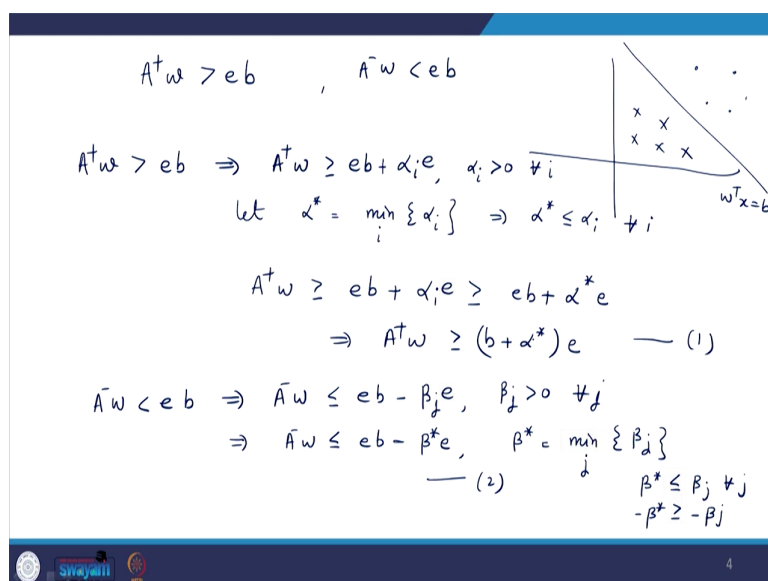 A⁺w > eb , A⁻w < eb
A⁺w > eb ⇒ A⁺w ≥ eb + αᵢe, αᵢ > 0 ∀ i
wᵀx = b
let α* = min {αᵢ} ⇒ α* ≤ αᵢ ∀ i
i
A⁺w ≥ eb + αᵢe ≥ eb + α*e
⇒ A⁺w ≥ (b + α*) e — (1)
A⁻w < eb ⇒ A⁻w ≤ eb - βⱼe, βⱼ > 0 ∀ j
⇒ A⁻w ≤ eb - β*e, β* = min {βⱼ}
j
— (2)
β* ≤ βⱼ ∀ j
-β* ≥ -βⱼ
swayam
4